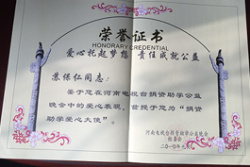 荣誉证书
HONORARY CREDENTIAL
爱心托起梦想 责任成就公益
苏保仁同志:
鉴于您在河南电视台捐资助学公益
晚会中的爱心表现,首授予您为“捐资
助学爱心大使”。
河南电视台捐资助学公益晚会
组委会